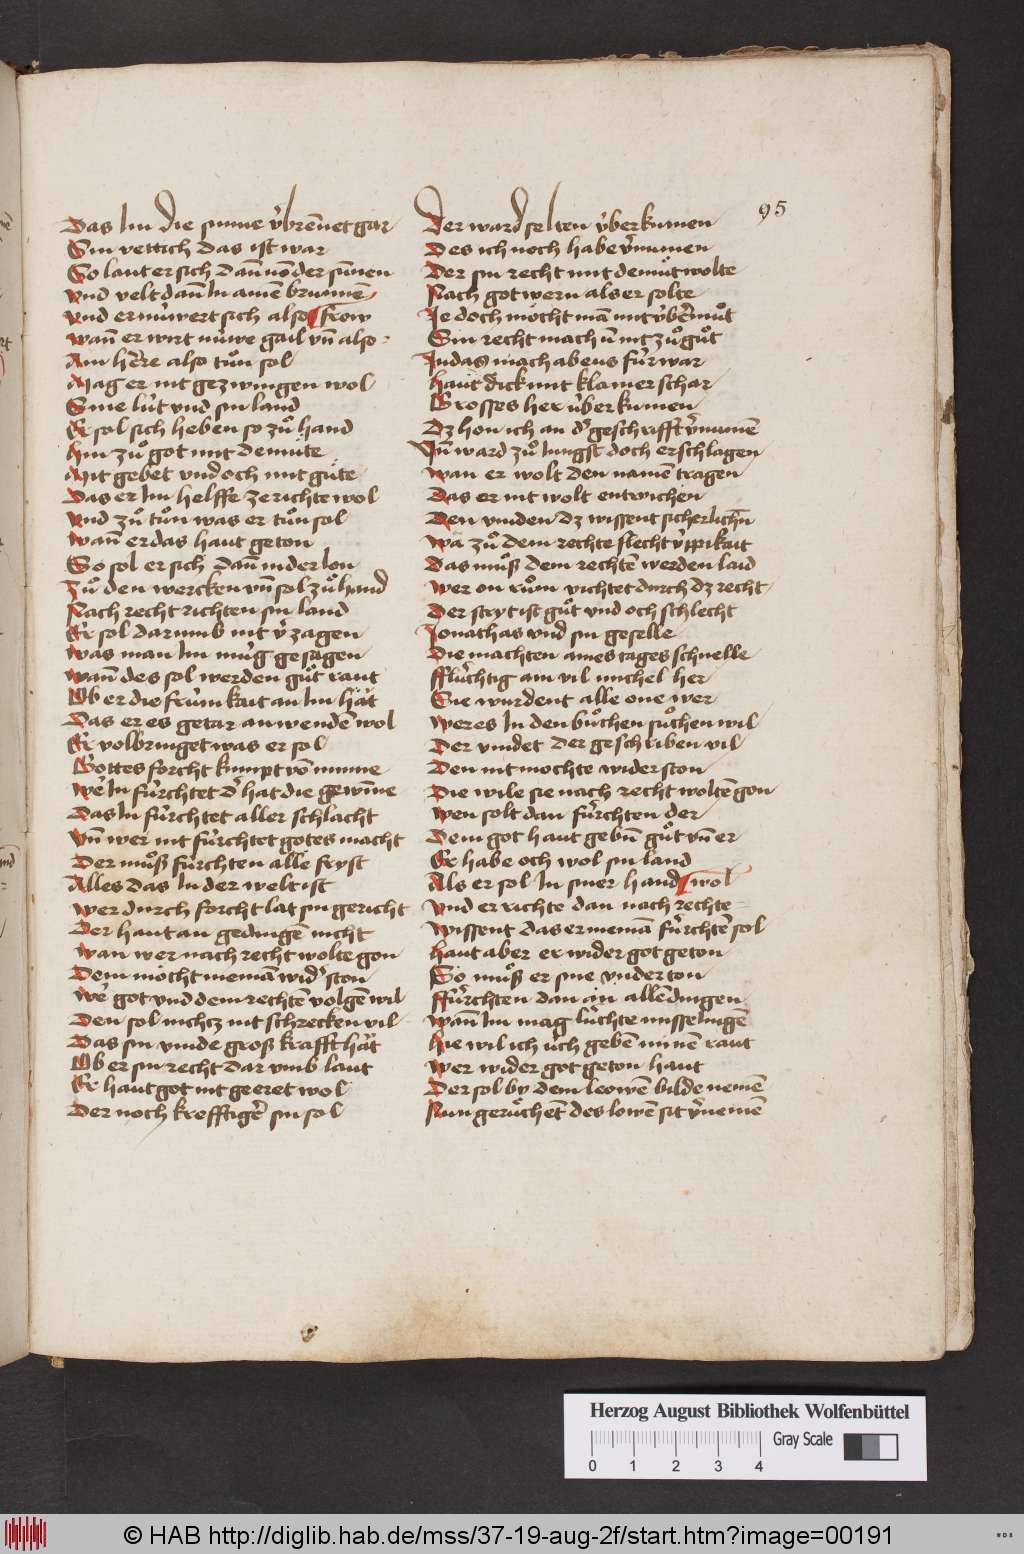 95
Das Im die sinne v̉brēnet gar
Sin vettich das ist war
So laut er sich dañ vō der sūnen
vnd velt dañ In ainē brunnē
vnd ernúwert sich also frow
wañ er wirt núwe gail vñ also
Ain hērre also tuͦn sol
Mag er nit gezwingen wol
Sine lút vnd sin land
Er sol sich heben so zuͦ hand
Hin zuͦ got mit demüte
Mit gebet vnd och mit güte
Das er Im helffe ze richte wol
vnd zuͦ tuͦn was er tuͦn sol
wañ er das haut geton
So sol er sich dañ nider lon
Zuͦ den wercken vñ sol zuͦ hand
Nach recht richten sin land
Er sol darumb nit v̉zagen
was man Im múg gesagen
wañ des sol werden guͦt raut
Ob er die frúmkait an Im hät
Das er es getar an wendē wol
Er volbringet was er sol
Gottes forcht kumpt vō minne
wer̉ In fúrchtet d̉ hat die gewīne
Das In fúrchtet aller schlacht
vñ wer nit fúrchtet gotes macht
Der muͦß fúrchten alle fryst
Alles das In der welt ist
wer durch forcht lat sin gericht
Der haut an gedingē nicht
wan wer nach recht wolte gon
Dem möcht niemā wid̉ ston
wer̉ got vnd dem rechtē volgē wil
Den sol nichcz nit schrecken vil
Das sin vinde groß krafft hät
Ob er sin recht dar vmb laut
Er haut got nit geeret wol
Der noch krefftiger̉ sin sol
Der ward selten v̉berkumen
Des ich noch habe v̉numen
Der sin recht mit demüt wolte
Nach got wern als er solte
Je doch möcht mā mit v̉bermuͦt
Sin recht mach ū nit zuͦ guͦt
Judas machabeus fúr war
Haut dick mit klainer schar
Grosses her v̉berkumen
Dz hon ich an d̉ geschrifft v̉numē
Vñ ward zuͦ Jungst doch erschlagen
wan er wolt den namē tragen
Das er nit wolt entwichen
Den vinden dz wissent sicherlichn̄
wā zuͦ dem rechte slecht v̉ppikait
Das muͦß dem rechten werden laid
wer on ruͦm vichtet durch dz recht
Der stryt ist guͦt vnd och schlecht
Jonathas vnd sin geselle
Die machten aines tages schnelle
fflúchtig ain vil michel her
Sie wurdent alle one wer
wer es In den buͦchen suͦchen wil
Der vindet der geschriben vil
Den nit mochte wider ston
Die wile sie nach recht woltē gon
wen solt dan fúrchten der
Dem got haut gebn̄ guͦt vñ er
Er habe och wol sin land
Als er sol In siner hand wol
vnd er richte dan nach rechte
wissent das er niemā fúrchtē sol
haut aber er wider got geton
So muͦß er sine vnder ton
ffúrchten dan an allē dingen
wañ Im mag lichte misselingē
Hie wil ich úch gebē minē raut
wer wider got geton haut
Der sol by dem leowē bilde nemē
Nun geruͦchēt des lowē sit v̉nemē
Herzog August Bibliothek Wolfenbüttel
Gray Scale
0 1 2 3 4
© HAB http://diglib.hab.de/mss/37-19-aug-2f/start.htm?image=00191
WDB